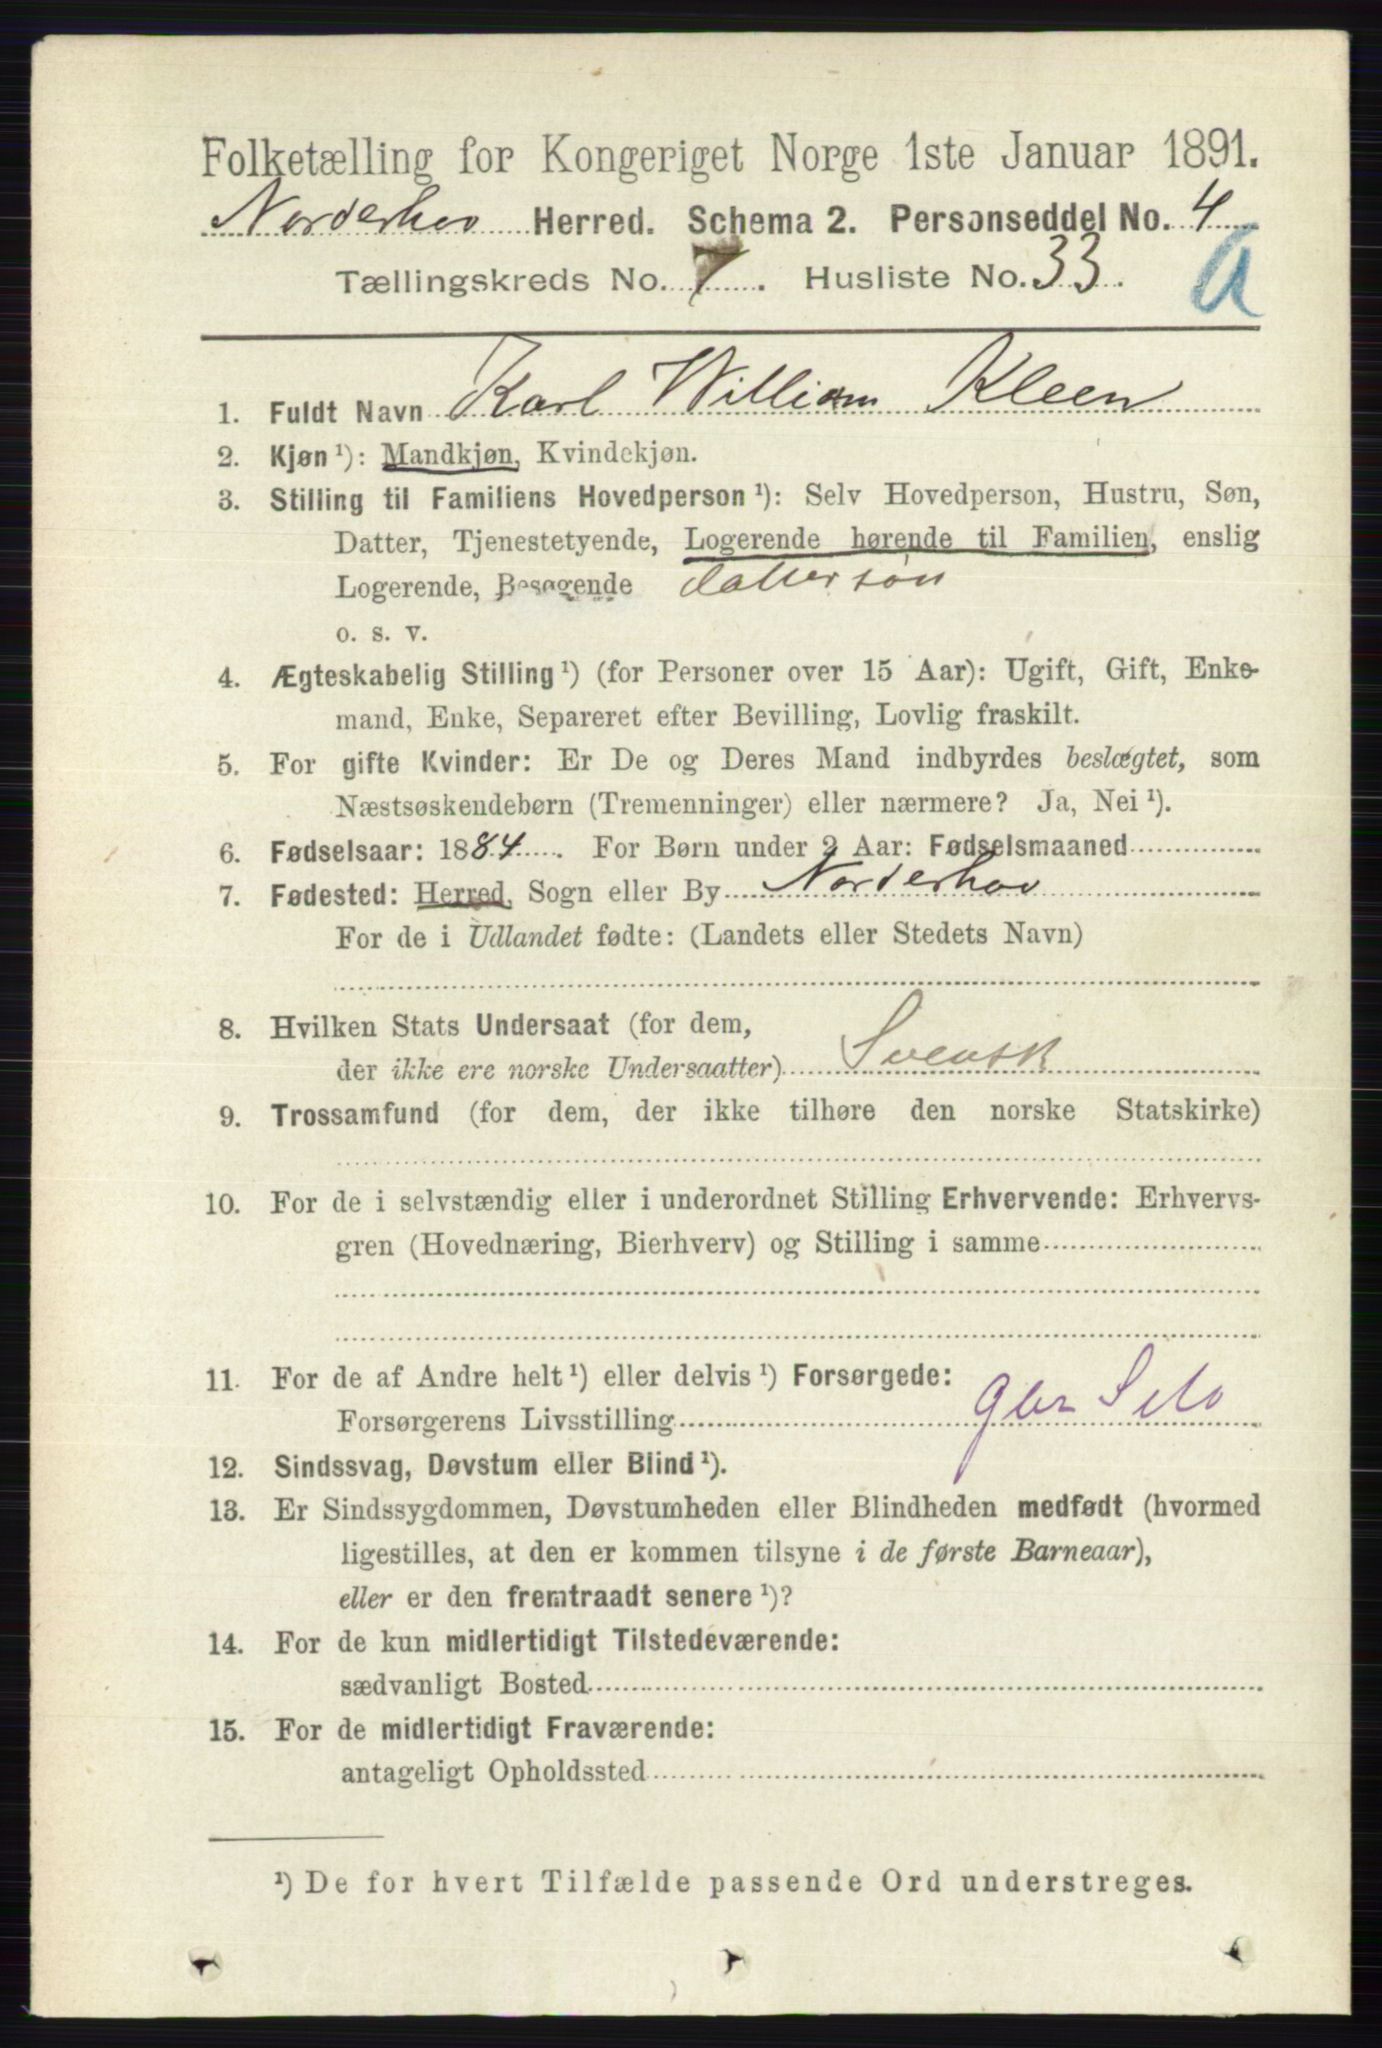 Folketælling for Kongeriget Norge 1ste Januar 1891.
Norderhov Herred. Schema 2. Personseddel No. 4
Tællingskreds No. 7. Husliste No. 33. a
1. Fuldt Navn Karl William Kleen
2. Kjøn ¹): Mandkjøn, Kvindekjøn.
3. Stilling til Familiens Hovedperson ¹): Selv Hovedperson, Hustru, Søn,
Datter, Tjenestetyende, Logerende hørende til Familien, enslig
Logerende, Besøgende dattersøn
o. s. v.
4. Ægteskabelig Stilling ¹) (for Personer over 15 Aar): Ugift, Gift, Enke-
mand, Enke, Separeret efter Bevilling, Lovlig fraskilt.
5. For gifte Kvinder: Er De og Deres Mand indbyrdes beslægtet, som
Næstsøskendebørn (Tremenninger) eller nærmere? Ja, Nei ¹).
6. Fødselsaar: 1884. For Børn under 2 Aar: Fødselsmaaned
7. Fødested: Herred, Sogn eller By Norderhov
For de i Udlandet fødte: (Landets eller Stedets Navn)
8. Hvilken Stats Undersaat (for dem,
der ikke ere norske Undersaatter) Svensk
9. Trossamfund (for dem, der ikke tilhøre den norske Statskirke)
10. For de i selvstændig eller i underordnet Stilling Erhvervende: Erhvervs-
gren (Hovednæring, Bierhverv) og Stilling i samme
11. For de af Andre helt ¹) eller delvis ¹) Forsørgede:
Forsørgerens Livsstilling
12. Sindssvag, Døvstum eller Blind ¹).
13. Er Sindssygdommen, Døvstumheden eller Blindheden medfødt (hvormed
ligestilles, at den er kommen tilsyne i de første Barneaar),
eller er den fremtraadt senere ¹)?
14. For de kun midlertidigt Tilstedeværende:
sædvanligt Bosted
15. For de midlertidigt Fraværende:
antageligt Opholdssted
¹) De for hvert Tilfælde passende Ord understreges.